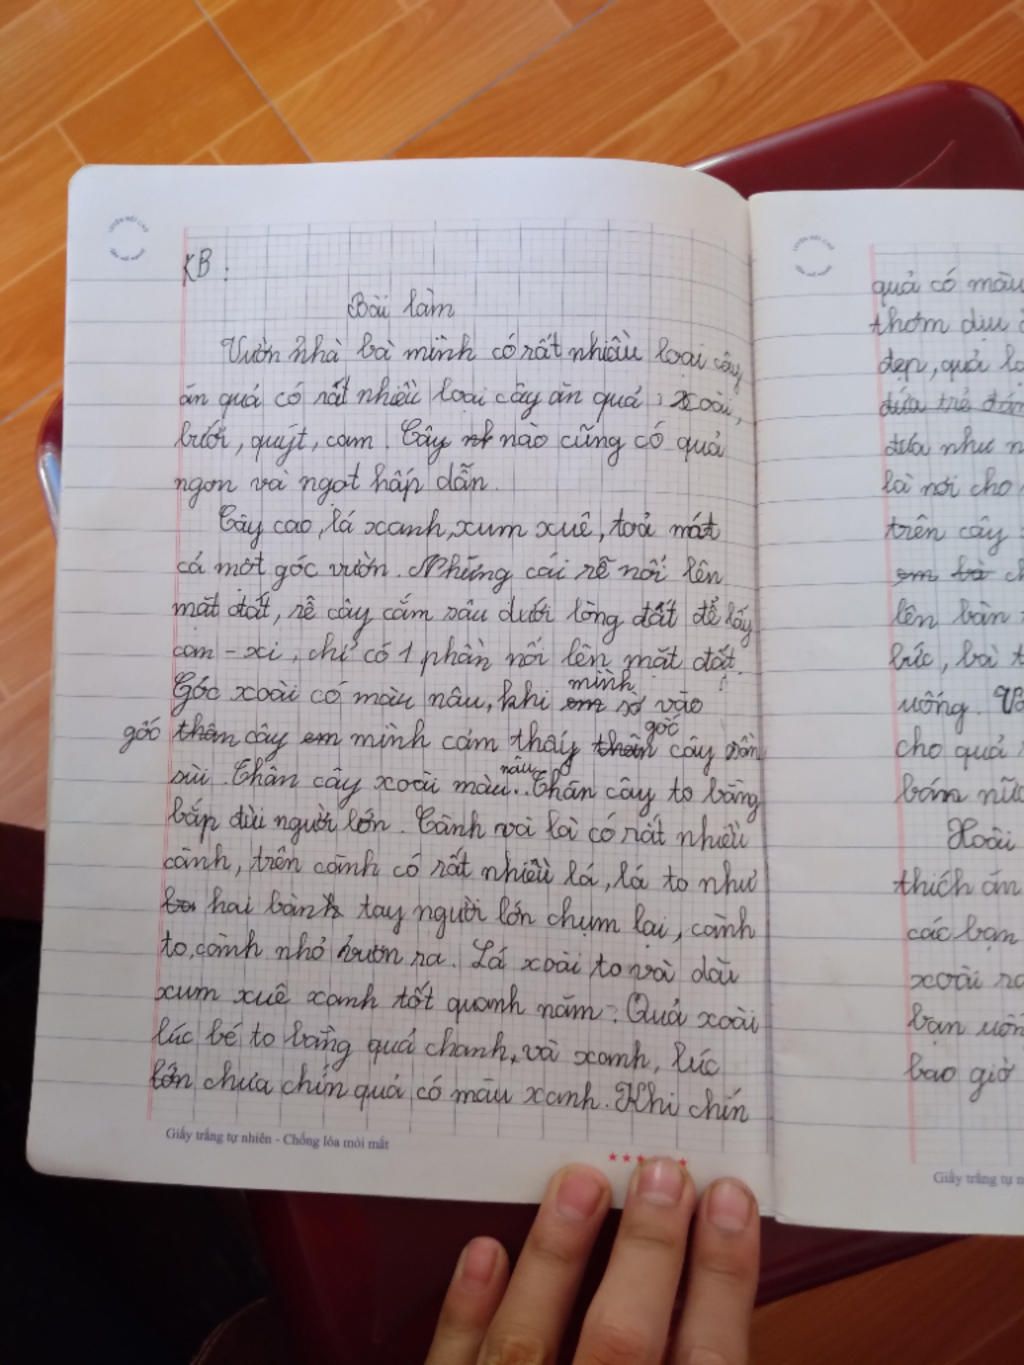 KB:
Bài làm
Vườn nhà bà mình có rất nhiều loại cây
ăn quả có rất nhiều loại cây ăn quả: xoài,
bưởi, quýt, cam. Cây nào cũng có quả
ngon và ngọt hấp dẫn.
Cây cao, lá xanh, xum xuê, toả mát
cả một góc vườn. Những cái rễ nổi lên
mặt đất, rễ cây cắm sâu dưới lòng đất để lấy
can-xi, chỉ có 1 phần nổi lên mặt đất.
Gốc xoài có màu nâu, khi mình sờ vào
gốc cây mình cảm thấy gốc cây sần
sùi. Thân cây xoài màu nâu. Thân cây to bằng
bắp đùi người lớn. Cành và lá có rất nhiều
cành, trên cành có rất nhiều lá, lá to như
hai bàn tay người lớn chụm lại, cành
to, cành nhỏ vươn ra. Lá xoài to và dài
xum xuê xanh tốt quanh năm. Quả xoài
lúc bé to bằng quả chanh, và xanh, lúc
lớn chưa chín quả có màu xanh. Khi chín
Giấy trắng tự nhiên - Chống lóa mỏi mắt
quả có màu
thơm dịu
đẹp, quả
đứa trẻ
đưa như
là nơi cho
trên cây
em bà
lên bàn
bức, bà
uống.
cho quả
bán nữa
Xoài
thích ăn
các bạn
xoài
bạn uốn
bao giờ
Giấy trắng tự